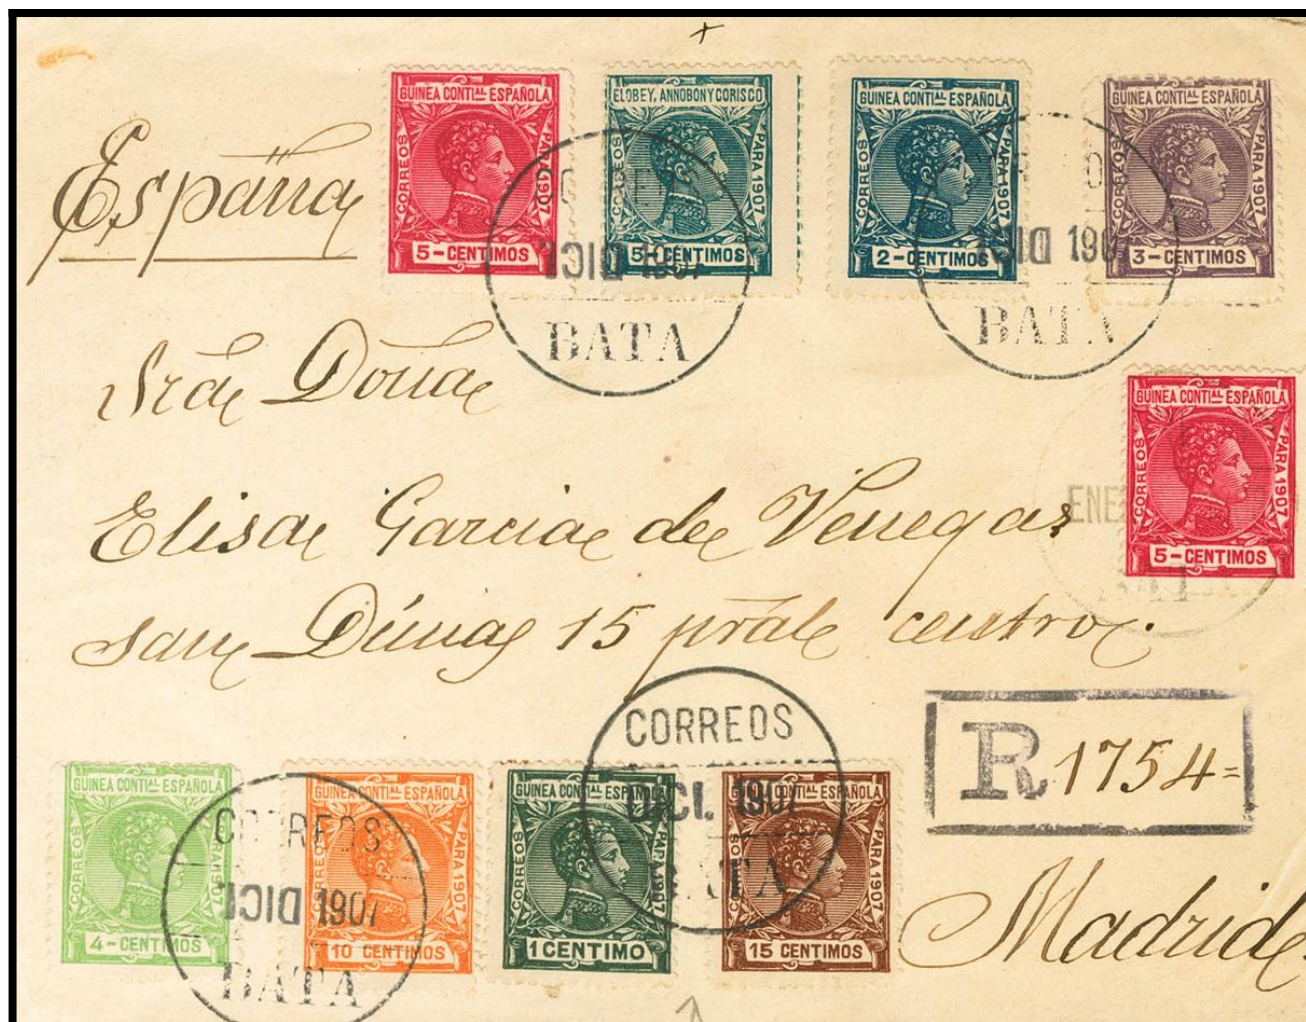 GUINEA CONTIAL ESPAÑOLA
CORREOS
PARA 1907
5-CENTIMOS
ELOBEY, ANNOBON Y CORISCO
CORREOS
PARA 1907
5-CENTIMOS
GUINEA CONTIAL ESPAÑOLA
CORREOS
PARA 1907
2-CENTIMOS
GUINEA CONTIAL ESPAÑOLA
CORREOS
PARA 1907
3-CENTIMOS
España
DICI 1907
BATA
DICI 1907
BATA
Sra Doña
GUINEA CONTIAL ESPAÑOLA
CORREOS
PARA 1907
5-CENTIMOS
Elisa Garcia de Venegas
15 pral centro.
CORREOS
DICI. 1907
BATA
R 1754=
GUINEA CONTIAL ESPAÑOLA
CORREOS
PARA 1907
4-CENTIMOS
CORREOS
DICI 1907
BATA
GUINEA CONTIAL ESPAÑOLA
CORREOS
PARA 1907
10 CENTIMOS
GUINEA CONTIAL ESPAÑOLA
CORREOS
PARA 1907
1 CENTIMO
GUINEA CONTIAL ESPAÑOLA
CORREOS
PARA 1907
15 CENTIMOS
Madrid.